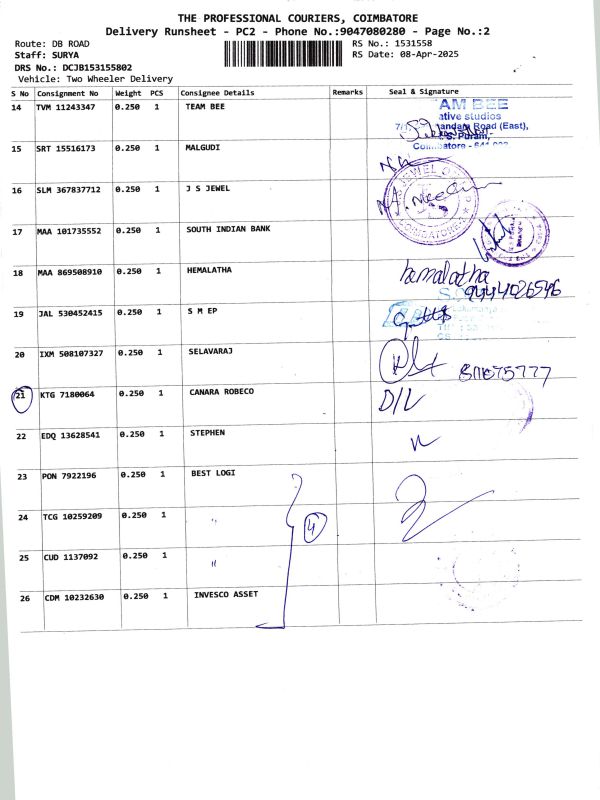 THE PROFESSIONAL COURIERS, COIMBATORE
Delivery Runsheet - PC2 - Phone No.:9047080280 - Page No.:2
Route: DB ROAD
RS No.: 1531558
Staff: SURYA
RS Date: 08-Apr-2025
DRS No.: DCJB153155802
Vehicle: Two Wheeler Delivery
S No Consignment No Weight PCS Consignee Details Remarks Seal & Signature
14 TVM 11243347 0.250 1 TEAM BEE
AM BEE
ative studios
Road (East),
15 SRT 15516173 0.250 1 MALGUDI
16 SLM 367837712 0.250 1 J S JEWEL
17 MAA 101735552 0.250 1 SOUTH INDIAN BANK
18 MAA 869508910 0.250 1 HEMALATHA hemalatha
9444026546
19 JAL 530452415 0.250 1 S M EP
20 IXM 508107327 0.250 1 SELAVARAJ
21 KTG 7180064 0.250 1 CANARA ROBECO D/L
22 EDQ 13628541 0.250 1 STEPHEN
23 PON 7922196 0.250 1 BEST LOGI
24 TCG 10259209 0.250 1 " 4
25 CUD 1137092 0.250 1 "
26 CDM 10232630 0.250 1 INVESCO ASSET